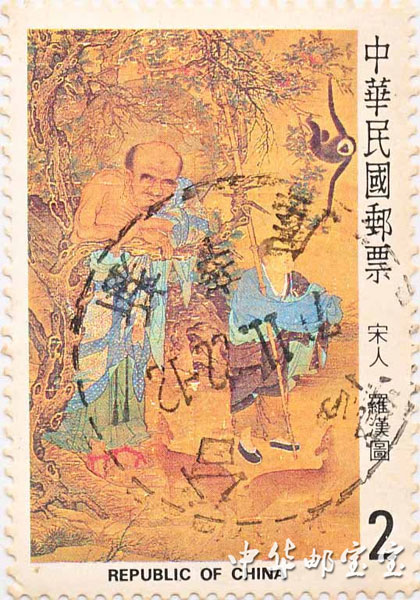 中華民國郵票
宋人 羅漢圖
2
REPUBLIC OF CHINA
中华邮宝宝